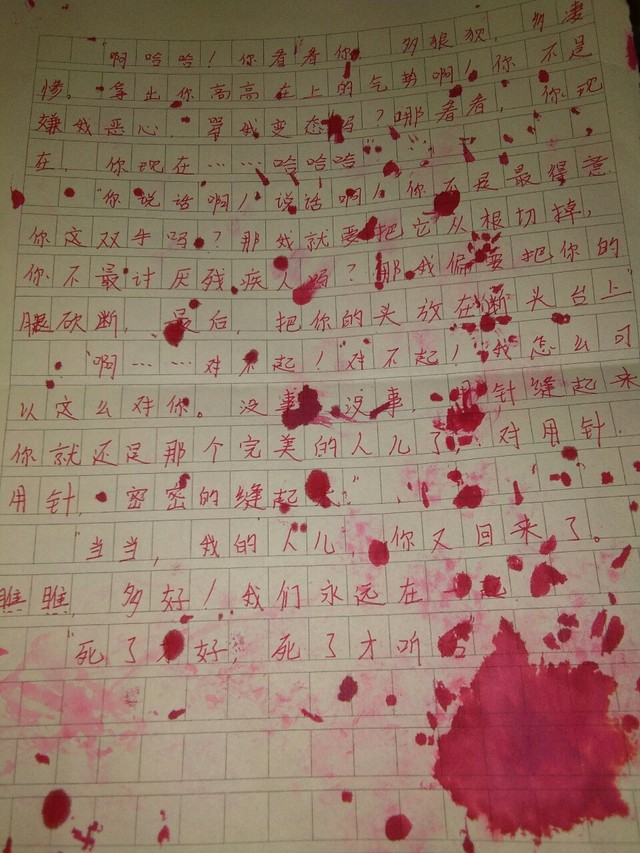 "啊哈哈！你看看你，多狼狈，多凄
惨。拿出你高高在上的气势啊！你不是
嫌我恶心，骂我变态吗？哪看看，你现
在，你现在……哈哈哈
"你说话啊！说话啊！你不是最得意
你这双手吗？那我就要把它从根切掉，
你不最讨厌残疾人吗？那我偏要把你的
腿砍断，最后，把你的头放在断头台上"
"啊……对不起！对不起！我怎么可
以这么对你。没事，没事，用针缝起来
你就还是那个完美的人儿了，对用针，
用针，密密的缝起
"当当，我的人儿，你又回来了。
瞧瞧，多好！我们永远在一起
"死了才好，死了才听话"